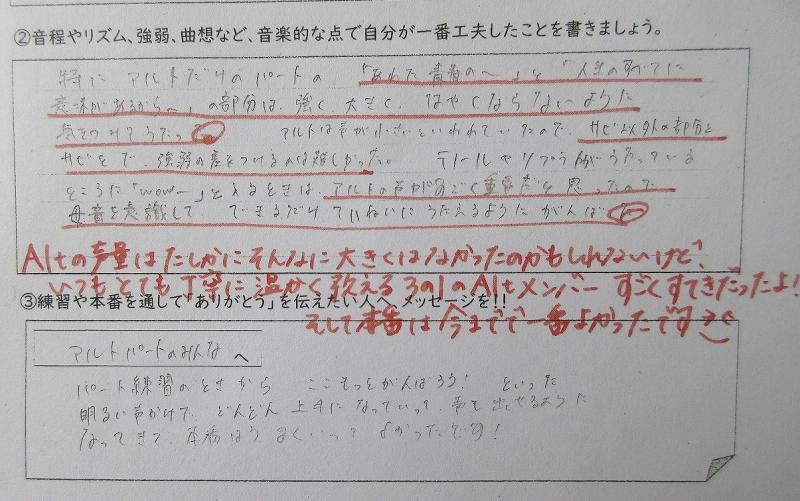 ②音程やリズム、強弱、曲想など、音楽的な点で自分が一番工夫したことを書きましょう。
特に アルトだけのパートの 「 」と「人生のすべてに
意味があるから〜」の部分は、強く、大きく、はやくならないように
気をつけてうたった。 アルトは声が小さいといわれていたので、サビ以外の部分と
サビとで、強弱の差をつけるのは難しかった。 テノールやソプラノがうたっている
ところに「wow〜」と入るときは、アルトの声がすごく重要だと思ったので
母音を意識して できるだけていねいにうたえるようにがんばった
Altの声量はたしかにそんなに大きくはなかったのかもしれないけど、
いつもとても丁寧に温かく歌える3の1のAltメンバー すごくすてきだったよ!
③練習や本番を通して「ありがとう」を伝えたい人へ、メッセージを!!
そして本番は今までで一番よかったです
アルトパートのみんな へ
パート練習のときから ここもっとがんばろう! といった
明るい声かけで、どんどん上手になっていって、声も出せるように
なってきて、本番はうまくいって よかったです!